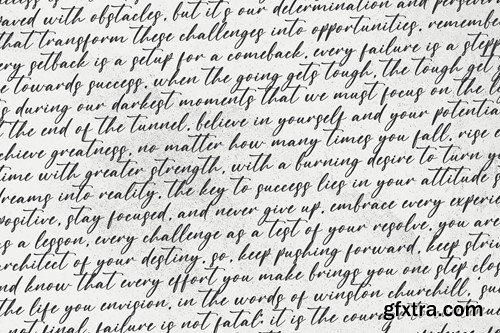 paved with obstacles, but it's our determination and
that transform these challenges into opportunities. remembe
ery setback is a setup for a comeback. every failure is a stepp
e towards success. when the going gets tough, the tough get
s during our darkest moments that we must focus on the
t the end of the tunnel. believe in yourself and your potentia
chieve greatness. no matter how many times you fall, rise
time with greater strength, with a burning desire to turn y
dreams into reality. the key to success lies in your attitude s
positive, stay focused, and never give up. embrace every experie
s a lesson, every challenge as a test of your resolve. you are
architect of your destiny. so, keep pushing forward, keep
nd know that every effort you make brings you one step clos
the life you envision. in the words of winston churchill,
not final failure is not fatal: it is the courage
gfxtra.com